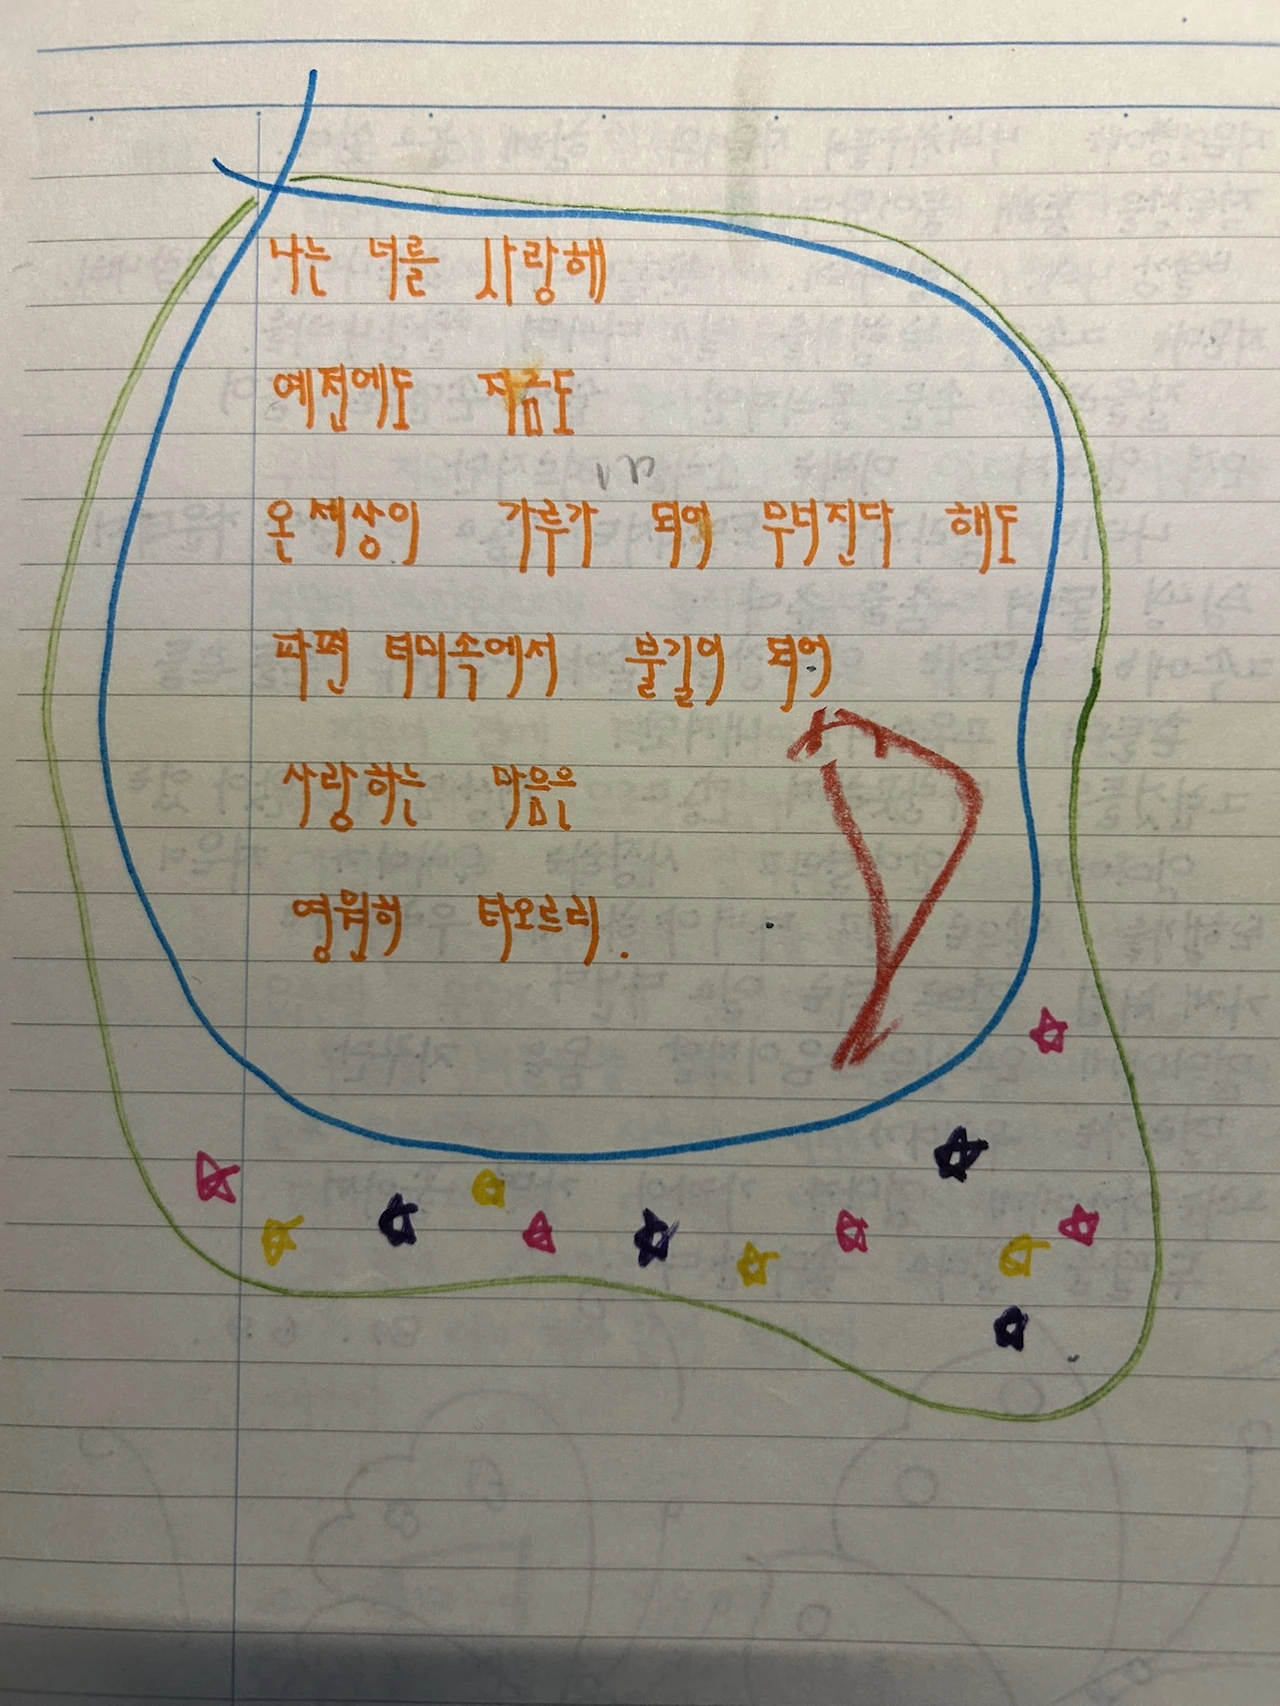 나는 너를 사랑해
예전에도 지금도
온세상이 가루가 되어 무너진다 해도
파편 더미속에서 불길이 되어
사랑하는 마음은
영원히 타오르리.